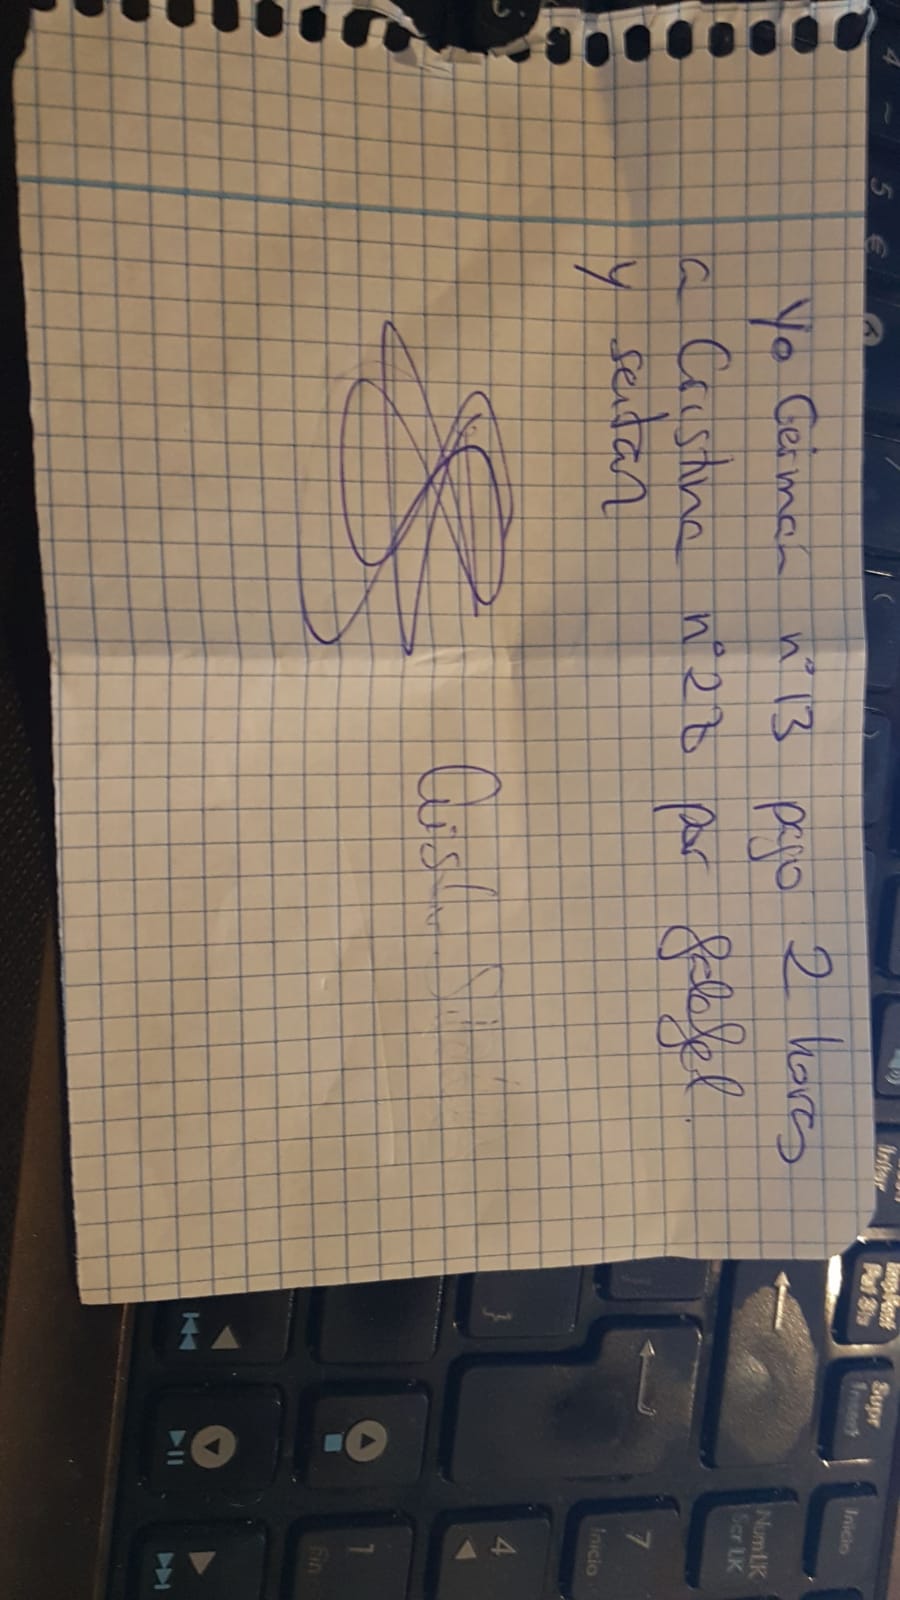 Yo Germán nº 13 pago 2 horas
a Cristina nº 28 por falafel.
y seitan
4 ~
5 €
Inter
Supr
Insert
Inicio
NumLK
Scr LK
7
Inicio
4
1
Fin